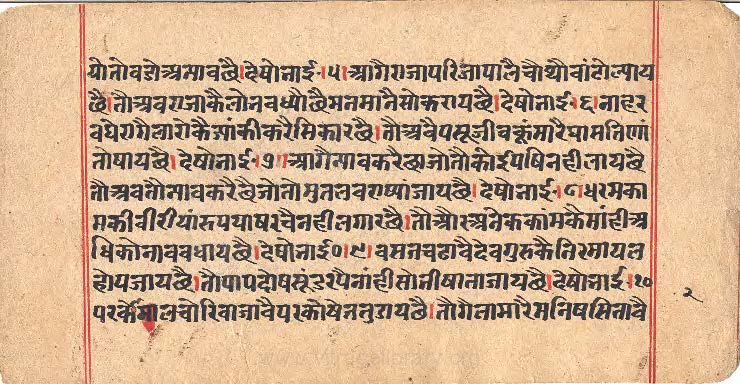 योतोवडोअमावछै।देषोनाई॰५।आगैराजापरिजापालैचौथौवांटोल्याय
छै।तौअवराजाकैलोनवध्यौछैमनमानैसोकरायछै।देषोनाई॰६।नाहर
वघेरागैलारोकैआंकीकरैसिकारछै।तौअवैपसूजीवकूंमारैघासतिणां
तोषायछै।देषोनाई॰७।आगैन्यावकरैछाजोतौकोईपषिनहीलायछै
तौअवतौन्यावकरैछैजोतोमुतलवराष्यांजायछै।देषोनाई॰८धरमका
मकीवीरीयांरुपयाषरचैनहीलगारछै।तौऔरअनेककांमकैमांहीअ
धिकोनाववधायछै।देषोनाई०।९।वसनचढावैदेवगुरुकैनिरमायल
होयजायछै।तौपापदोषसूंडरपैनांहीसोनीषानाजायछै।देषोनाई॰१०
परकैमालचोरिवाजावैपरकोषेननुगयछै।तौगेलामारैमनिषसिनावै
२